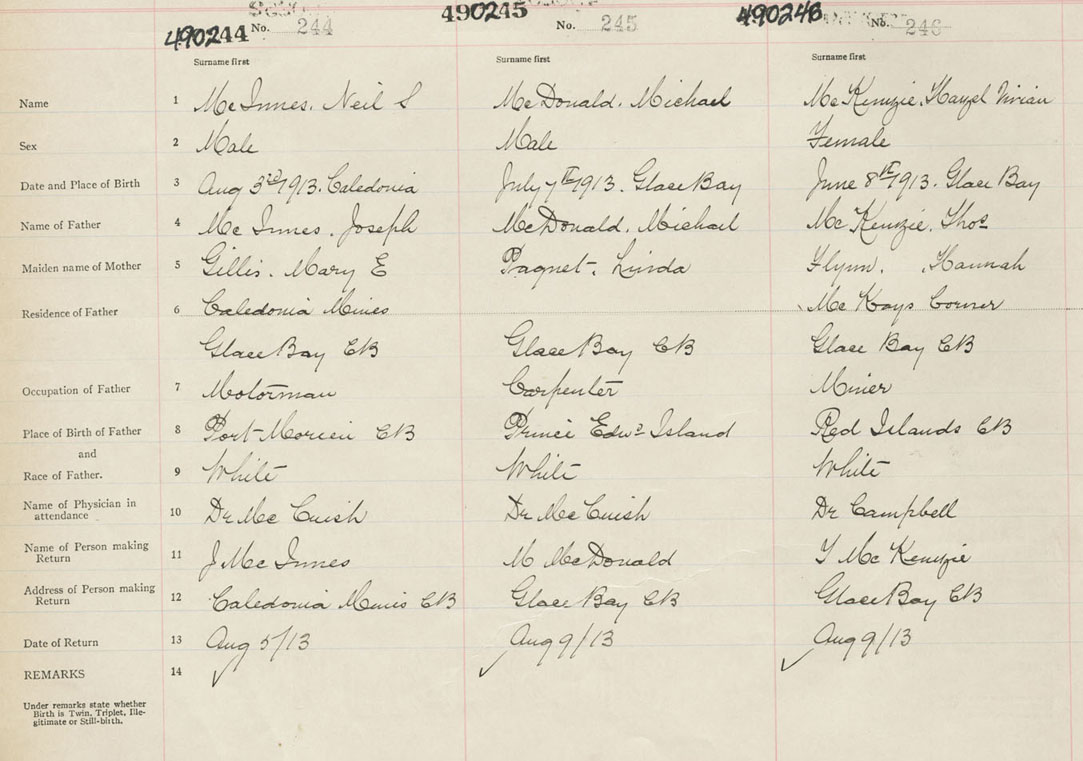 490244 No. 244 490245 No. 245 490246 No. 246
Surname first Surname first Surname first
Name 1 McInnes, Neil S McDonald, Michael McKenzie, Hazel Vivian
Sex 2 Male Male Female
Date and Place of Birth 3 Aug 3rd 1913. Caledonia July 7th 1913. Glace Bay June 8th 1913. Glace Bay
Name of Father 4 McInnes, Joseph McDonald, Michael McKenzie, Thos
Maiden name of Mother 5 Gillis. Mary E Paquet, Linda Flynn, Hannah
Residence of Father 6 Caledonia Mines McKays Corner
Glace Bay CB Glace Bay CB Glace Bay CB
Occupation of Father 7 Motorman Carpenter Miner
Place of Birth of Father 8 Port Morien CB Prince Edwd Island Red Islands CB
and
Race of Father. 9 White White White
Name of Physician in
attendance 10 Dr McCuish Dr McCuish Dr Campbell
Name of Person making
Return 11 J McInnes M McDonald T McKenzie
Address of Person making
Return 12 Caledonia Mines CB Glace Bay CB Glace Bay CB
Date of Return 13 Aug 5/13 Aug 9/13 Aug 9/13
REMARKS 14
Under remarks state whether
Birth is Twin, Triplet, Ille-
gitimate or Still-birth.